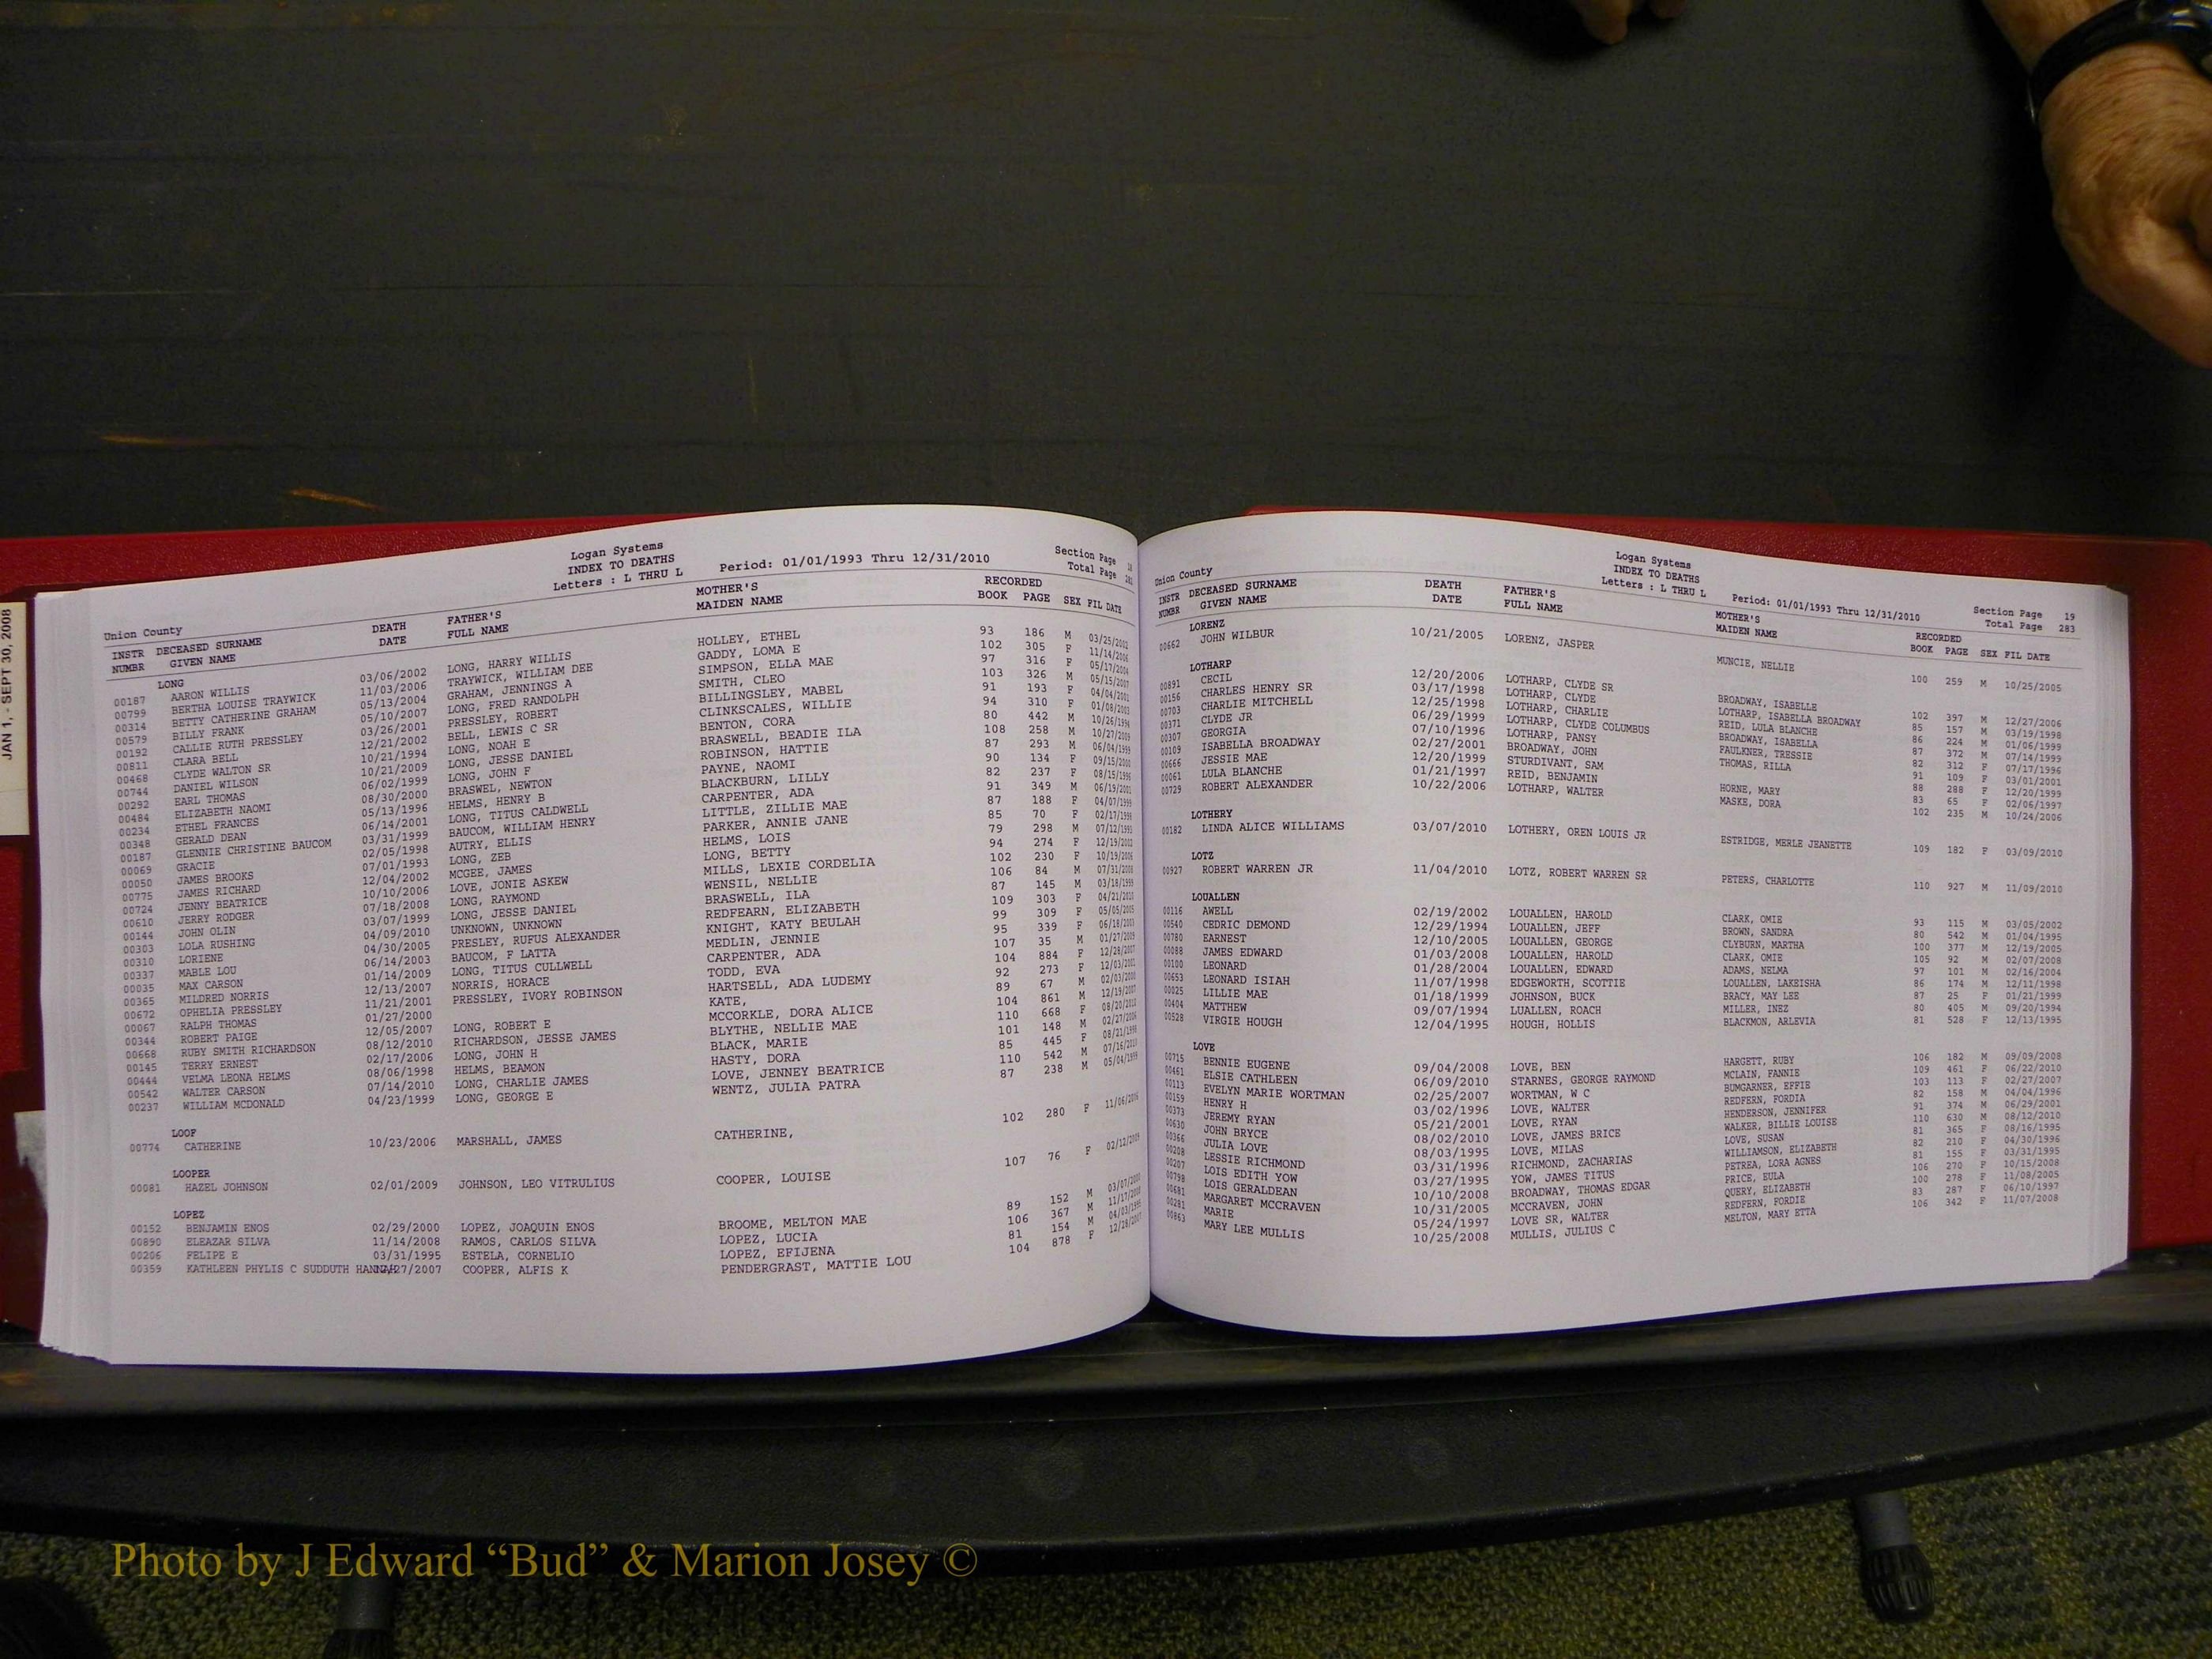 JAN 1, - SEPT 30, 2008
Logan Systems
INDEX TO DEATHS
Letters : L THRU L
Period: 01/01/1993 Thru 12/31/2010
Section Page
Total Page
Union County
INSTR DECEASED SURNAME DEATH FATHER'S MOTHER'S RECORDED
NUMBR GIVEN NAME DATE FULL NAME MAIDEN NAME BOOK PAGE SEX FIL DATE
LONG
00187 AARON WILLIS 03/06/2002 LONG, HARRY WILLIS HOLLEY, ETHEL 93 186 M 03/25/2002
00799 BERTHA LOUISE TRAYWICK 11/03/2006 TRAYWICK, WILLIAM DEE GADDY, LOMA E 102 305 F 11/14/2006
00314 BETTY CATHERINE GRAHAM 05/13/2004 GRAHAM, JENNINGS A SIMPSON, ELLA MAE 97 316 F 05/17/2004
00579 BILLY FRANK 05/10/2007 LONG, FRED RANDOLPH SMITH, CLEO 103 326 M 05/15/2007
00192 CALLIE RUTH PRESSLEY 03/26/2001 PRESSLEY, ROBERT BILLINGSLEY, MABEL 91 193 F 04/04/2001
00811 CLARA BELL 12/21/2002 BELL, LEWIS C SR CLINKSCALES, WILLIE 94 310 F 01/08/2003
00468 CLYDE WALTON SR 10/21/1994 LONG, NOAH E BENTON, CORA 80 442 M 10/26/1994
00744 DANIEL WILSON 10/21/2009 LONG, JESSE DANIEL BRASWELL, BEADIE ILA 108 258 M 10/27/2009
00292 EARL THOMAS 06/02/1999 LONG, JOHN F ROBINSON, HATTIE 87 293 M 06/04/1999
00484 ELIZABETH NAOMI 08/30/2000 BRASWEL, NEWTON PAYNE, NAOMI 90 134 F 09/15/2000
00234 ETHEL FRANCES 05/13/1996 HELMS, HENRY B BLACKBURN, LILLY 82 237 F 08/15/1996
00348 GERALD DEAN 06/14/2001 LONG, TITUS CALDWELL CARPENTER, ADA 91 349 M 06/19/2001
00187 GLENNIE CHRISTINE BAUCOM 03/31/1999 BAUCOM, WILLIAM HENRY LITTLE, ZILLIE MAE 87 188 F 04/07/1999
00069 GRACIE 02/05/1998 AUTRY, ELLIS PARKER, ANNIE JANE 85 70 F 02/17/1998
00050 JAMES BROOKS 07/01/1993 LONG, ZEB HELMS, LOIS 79 298 M 07/12/1993
00775 JAMES RICHARD 12/04/2002 MCGEE, JAMES LONG, BETTY 94 274 F 12/19/2002
00724 JENNY BEATRICE 10/10/2006 LOVE, JONIE ASKEW MILLS, LEXIE CORDELIA 102 230 F 10/19/2006
00610 JERRY RODGER 07/18/2008 LONG, RAYMOND WENSIL, NELLIE 106 84 M 07/31/2008
00144 JOHN OLIN 03/07/1999 LONG, JESSE DANIEL BRASWELL, ILA 87 145 M 03/18/1999
00303 LOLA RUSHING 04/09/2010 UNKNOWN, UNKNOWN REDFEARN, ELIZABETH 109 303 F 04/21/2010
00310 LORIENE 04/30/2005 PRESLEY, RUFUS ALEXANDER KNIGHT, KATY BEULAH 99 309 F 05/05/2005
00337 MABLE LOU 06/14/2003 BAUCOM, F LATTA MEDLIN, JENNIE 95 339 F 06/18/2003
00035 MAX CARSON 01/14/2009 LONG, TITUS CULLWELL CARPENTER, ADA 107 35 M 01/27/2009
00365 MILDRED NORRIS 12/13/2007 NORRIS, HORACE TODD, EVA 104 884 F 12/28/2007
00672 OPHELIA PRESSLEY 11/21/2001 PRESSLEY, IVORY ROBINSON HARTSELL, ADA LUDEMY 92 273 F 12/03/2001
00067 RALPH THOMAS 01/27/2000 KATE, 89 67 M 02/03/2000
00344 ROBERT PAIGE 12/05/2007 LONG, ROBERT E MCCORKLE, DORA ALICE 104 861 M 12/19/2007
00668 RUBY SMITH RICHARDSON 08/12/2010 RICHARDSON, JESSE JAMES BLYTHE, NELLIE MAE 110 668 F 08/20/2010
00145 TERRY ERNEST 02/17/2006 LONG, JOHN H BLACK, MARIE 101 148 M 02/27/2006
00444 VELMA LEONA HELMS 08/06/1998 HELMS, BEAMON HASTY, DORA 85 445 F 08/21/1998
00542 WALTER CARSON 07/14/2010 LONG, CHARLIE JAMES LOVE, JENNEY BEATRICE 110 542 M 07/16/2010
00237 WILLIAM MCDONALD 04/23/1999 LONG, GEORGE E WENTZ, JULIA PATRA 87 238 M 05/04/1999
LOOF
00774 CATHERINE 10/23/2006 MARSHALL, JAMES CATHERINE, 102 280 F 11/06/2006
LOOPER
00081 HAZEL JOHNSON 02/01/2009 JOHNSON, LEO VITRULIUS COOPER, LOUISE 107 76 F 02/12/2009
LOPEZ
00152 BENJAMIN ENOS 02/29/2000 LOPEZ, JOAQUIN ENOS BROOME, MELTON MAE 89 152 M 03/07/2000
00890 ELEAZAR SILVA 11/14/2008 RAMOS, CARLOS SILVA LOPEZ, LUCIA 106 367 M 11/17/2008
00206 FELIPE E 03/31/1995 ESTELA, CORNELIO LOPEZ, EFIJENA 81 154 M 04/03/1995
00359 KATHLEEN PHYLIS C SUDDUTH HANNAH 12/27/2007 COOPER, ALFIS K PENDERGRAST, MATTIE LOU 104 878 F 12/28/2007
Logan Systems
INDEX TO DEATHS
Letters : L THRU L
Period: 01/01/1993 Thru 12/31/2010
Section Page 19
Total Page 283
Union County
INSTR DECEASED SURNAME DEATH FATHER'S MOTHER'S RECORDED
NUMBR GIVEN NAME DATE FULL NAME MAIDEN NAME BOOK PAGE SEX FIL DATE
LORENZ
00662 JOHN WILBUR 10/21/2005 LORENZ, JASPER MUNCIE, NELLIE 100 259 M 10/25/2005
LOTHARP
00891 CECIL 12/20/2006 LOTHARP, CLYDE SR BROADWAY, ISABELLE 102 397 M 12/27/2006
00156 CHARLES HENRY SR 03/17/1998 LOTHARP, CLYDE LOTHARP, ISABELLA BROADWAY 85 157 M 03/19/1998
00703 CHARLIE MITCHELL 12/25/1998 LOTHARP, CHARLIE REID, LULA BLANCHE 86 224 M 01/06/1999
00371 CLYDE JR 06/29/1999 LOTHARP, CLYDE COLUMBUS BROADWAY, ISABELLA 87 372 M 07/14/1999
00307 GEORGIA 07/10/1996 LOTHARP, PANSY FAULKNER, TRESSIE 82 312 F 07/17/1996
00109 ISABELLA BROADWAY 02/27/2001 BROADWAY, JOHN THOMAS, RILLA 91 109 F 03/01/2001
00666 JESSIE MAE 12/20/1999 STURDIVANT, SAM 88 288 F 12/20/1999
00061 LULA BLANCHE 01/21/1997 REID, BENJAMIN HORNE, MARY 83 65 F 02/06/1997
00729 ROBERT ALEXANDER 10/22/2006 LOTHARP, WALTER MASKE, DORA 102 235 M 10/24/2006
LOTHERY
00182 LINDA ALICE WILLIAMS 03/07/2010 LOTHERY, OREN LOUIS JR ESTRIDGE, MERLE JEANETTE 109 182 F 03/09/2010
LOTZ
00927 ROBERT WARREN JR 11/04/2010 LOTZ, ROBERT WARREN SR PETERS, CHARLOTTE 110 927 M 11/09/2010
LOUALLEN
00116 AWELL 02/19/2002 LOUALLEN, HAROLD CLARK, OMIE 93 115 M 03/05/2002
00540 CEDRIC DEMOND 12/29/1994 LOUALLEN, JEFF BROWN, SANDRA 80 542 M 01/04/1995
00780 EARNEST 12/10/2005 LOUALLEN, GEORGE CLYBURN, MARTHA 100 377 M 12/19/2005
00088 JAMES EDWARD 01/03/2008 LOUALLEN, HAROLD CLARK, OMIE 105 92 M 02/07/2008
00100 LEONARD 01/28/2004 LOUALLEN, EDWARD ADAMS, NELMA 97 101 M 02/16/2004
00653 LEONARD ISIAH 11/07/1998 EDGEWORTH, SCOTTIE LOUALLEN, LAKEISHA 86 174 M 12/11/1998
00025 LILLIE MAE 01/18/1999 JOHNSON, BUCK BRACY, MAY LEE 87 25 F 01/21/1999
00404 MATTHEW 09/07/1994 LUALLEN, ROACH MILLER, INEZ 80 405 M 09/20/1994
00528 VIRGIE HOUGH 12/04/1995 HOUGH, HOLLIS BLACKMON, ARLEVIA 81 528 F 12/13/1995
LOVE
00715 BENNIE EUGENE 09/04/2008 LOVE, BEN HARGETT, RUBY 106 182 M 09/09/2008
00461 ELSIE CATHLEEN 06/09/2010 STARNES, GEORGE RAYMOND MCLAIN, FANNIE 109 461 F 06/22/2010
00113 EVELYN MARIE WORTMAN 02/25/2007 WORTMAN, W C BUMGARNER, EFFIE 103 113 F 02/27/2007
00159 HENRY H 03/02/1996 LOVE, WALTER REDFERN, FORDIA 82 158 M 04/04/1996
00373 JEREMY RYAN 05/21/2001 LOVE, RYAN HENDERSON, JENNIFER 91 374 M 06/29/2001
00630 JOHN BRYCE 08/02/2010 LOVE, JAMES BRICE WALKER, BILLIE LOUISE 110 630 M 08/12/2010
00366 JULIA LOVE 08/03/1995 LOVE, MILAS LOVE, SUSAN 81 365 F 08/16/1995
00208 LESSIE RICHMOND 03/31/1996 RICHMOND, ZACHARIAS WILLIAMSON, ELIZABETH 82 210 F 04/30/1996
00207 LOIS EDITH YOW 03/27/1995 YOW, JAMES TITUS PETREA, LORA AGNES 81 155 F 03/31/1995
00798 LOIS GERALDEAN 10/10/2008 BROADWAY, THOMAS EDGAR PRICE, EULA 106 270 F 10/15/2008
00681 MARGARET MCCRAVEN 10/31/2005 MCCRAVEN, JOHN QUERY, ELIZABETH 100 278 F 11/08/2005
00281 MARIE 05/24/1997 LOVE SR, WALTER REDFERN, FORDIE 83 287 F 06/10/1997
00863 MARY LEE MULLIS 10/25/2008 MULLIS, JULIUS C MELTON, MARY ETTA 106 342 F 11/07/2008
Photo by J Edward “Bud” & Marion Josey ©